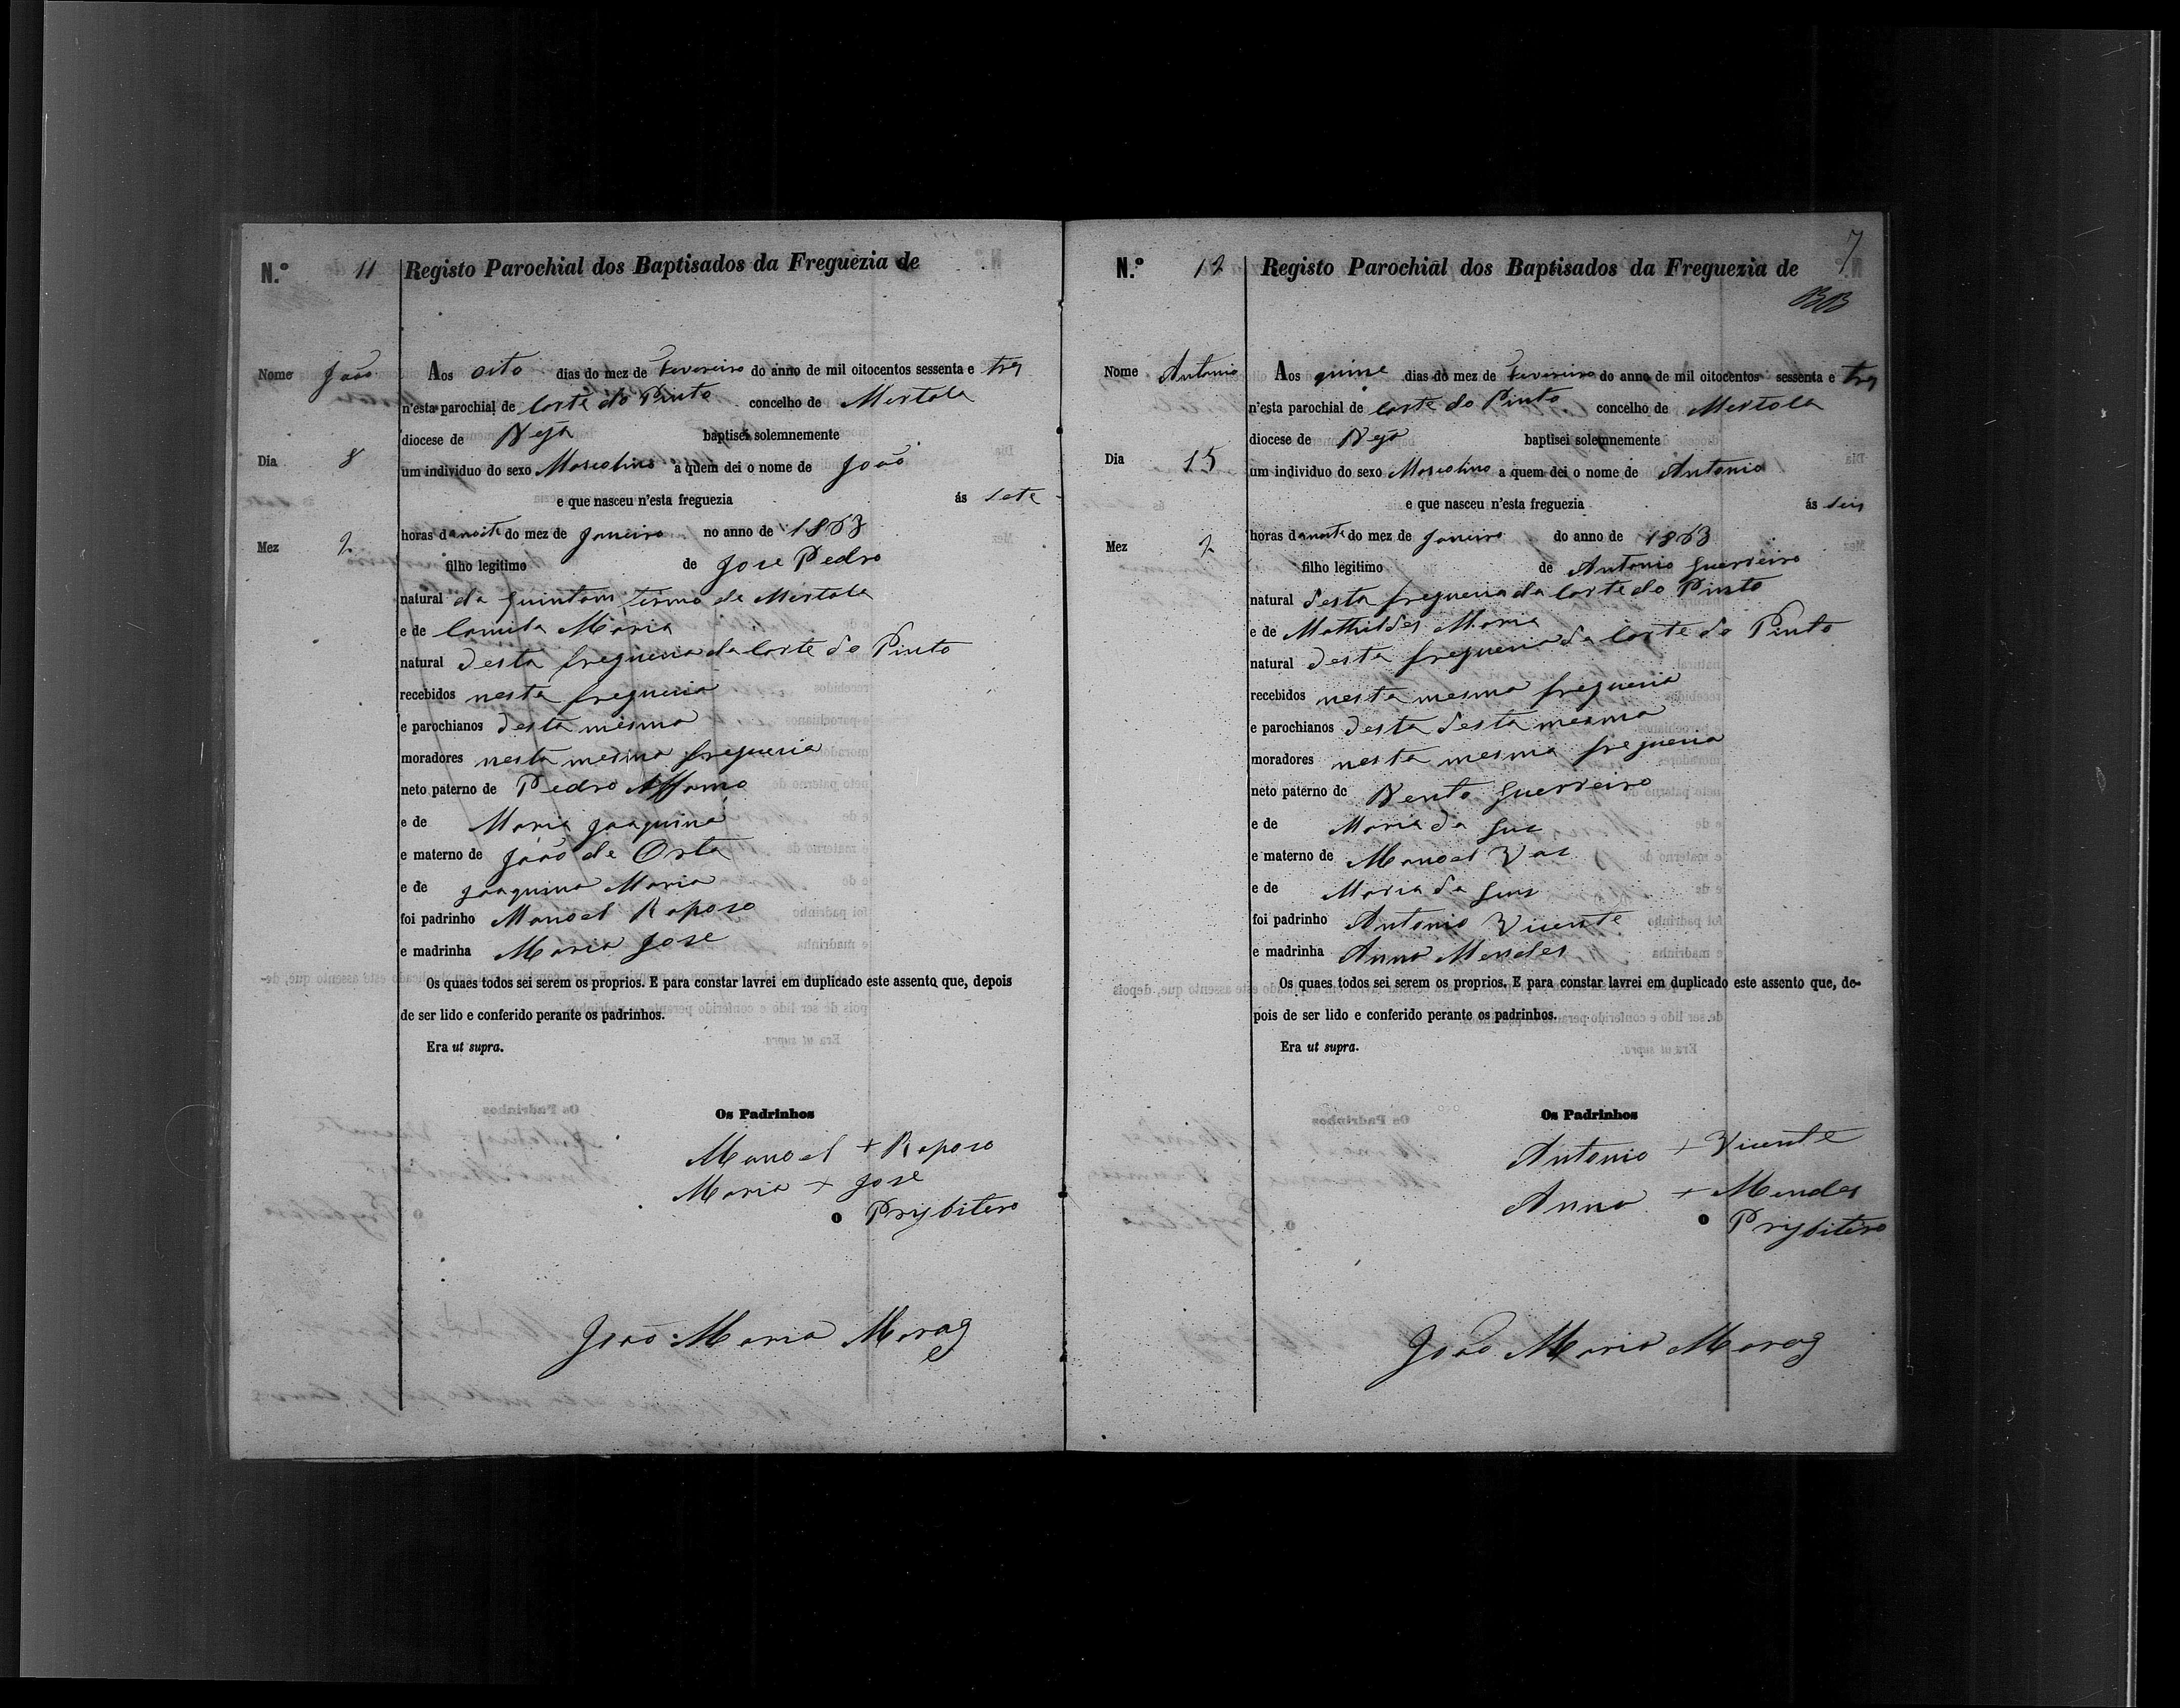 N.º 11 Registo Parochial dos Baptisados da Freguezia de
Nome João
Dia 8
Mez 2
Aos oito dias do mez de Fevereiro do anno de mil oitocentos sessenta e tres
n'esta parochial de Corte do Pinto concelho de Mertola
diocese de Beja baptisei solemnemente
um individuo do sexo Mascolino a quem dei o nome de João
e que nasceu n'esta freguezia ás sete
horas danoite do mez de Janeiro no anno de 1863
filho legitimo de Jose Pedro
natural da termo de Mertola
e de Camila Maria
natural desta freguezia da Corte do Pinto
recebidos nesta freguezia
e parochianos desta mesma
moradores nesta mesma freguezia
neto paterno de Pedro Affonso
e de Maria Joaquina
e materno de João de Orta
e de Joaquina Maria
foi padrinho Manoel Raposo
e madrinha Maria Jose
Os quaes todos sei serem os proprios. E para constar lavrei em duplicado este assento que, depois
de ser lido e conferido perante os padrinhos.
Era ut supra.
Os Padrinhos
Manoel + Raposo
Maria + Jose
O Prysbitero
João Maria
7
N.º 12 Registo Parochial dos Baptisados da Freguezia de
BB
Nome Antonio
Dia 15
Mez 2
Aos quinse dias do mez de Fevereiro do anno de mil oitocentos sessenta e tres
n'esta parochial de Corte do Pinto concelho de Mertola
diocese de Beja baptisei solemnemente
um individuo do sexo Mascolino a quem dei o nome de Antonio
e que nasceu n'esta freguezia ás seis
horas danoite do mez de Janeiro do anno de 1863
filho legitimo de Antonio Guerreiro
natural desta freguezia da Corte do Pinto
e de Mathildes Maria
natural desta freguezia da Corte do Pinto
recebidos nesta mesma freguezia
e parochianos desta desta mesma
moradores nesta mesma freguezia
neto paterno de Bento Guerreiro
e de Maria da Luz
e materno de Manoel Vaz
e de Maria da Luz
foi padrinho Antonio Vicente
e madrinha Anna Mendes
Os quaes todos sei serem os proprios. E para constar lavrei em duplicado este assento que, de-
pois de ser lido e conferido perante os padrinhos.
Era ut supra.
Os Padrinhos
Antonio + Vicente
Anna + Mendes
O Prysbitero
João Maria